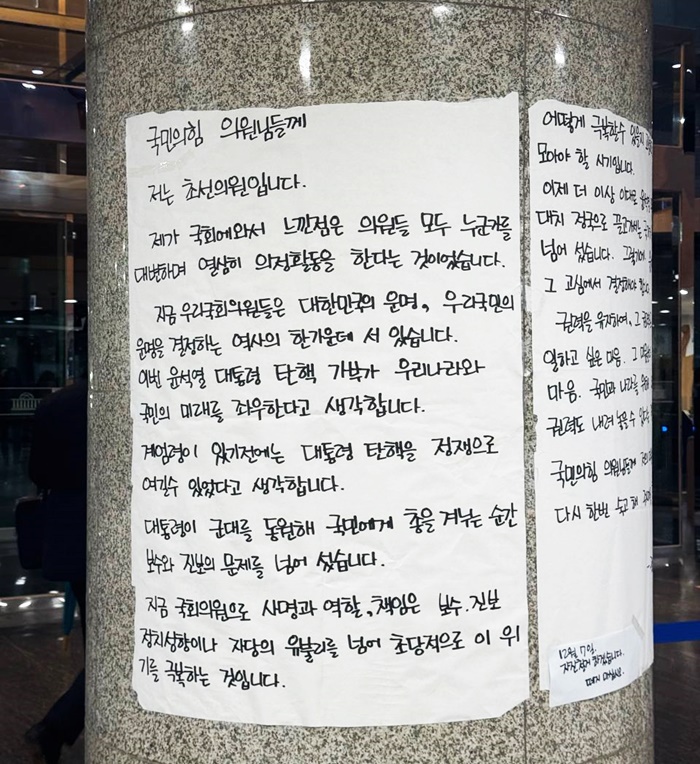 국민의힘 의원님들께
저는 초선의원입니다.
제가 국회에와서 느낀점은 의원들 모두 누군가를
대변하며 열심히 의정활동을 한다는 것이었습니다.
지금 우리국회의원들은 대한민국의 운명, 우리국민의
운명을 결정하는 역사의 한가운데 서 있습니다.
이번 윤석열 대통령 탄핵 가부가 우리나라와
국민의 미래를 좌우한다고 생각합니다.
계엄령이 있기전에는 대통령 탄핵을 정쟁으로
여길수 있었다고 생각합니다.
대통령이 군대를 동원해 국민에게 총을 겨눈 순간
보수와 진보의 문제를 넘어 섰습니다.
지금 국회의원으로 사명과 역할, 책임은 보수·진보
정치성향이나 자당의 유불리를 넘어 초당적으로 이 위
기를 극복하는 것입니다.
어떻게 극복할수 있을지
모아야 할 시기입니다.
이제 더 이상 이대로
대치 정국으로 끌고가서는
넘어 섰습니다. 그렇기에
그 고심에서 결정해야 합니다
권력을 유지하여, 그
일하고 싶은 마음. 그
마음. 국민과 나라를 위해
권력도 내려 놓을수
국민의힘 의원님들께
다시 한번 숙고 해
12월 7일.
자진철거 하겠습니다.
떼지 마십시오.